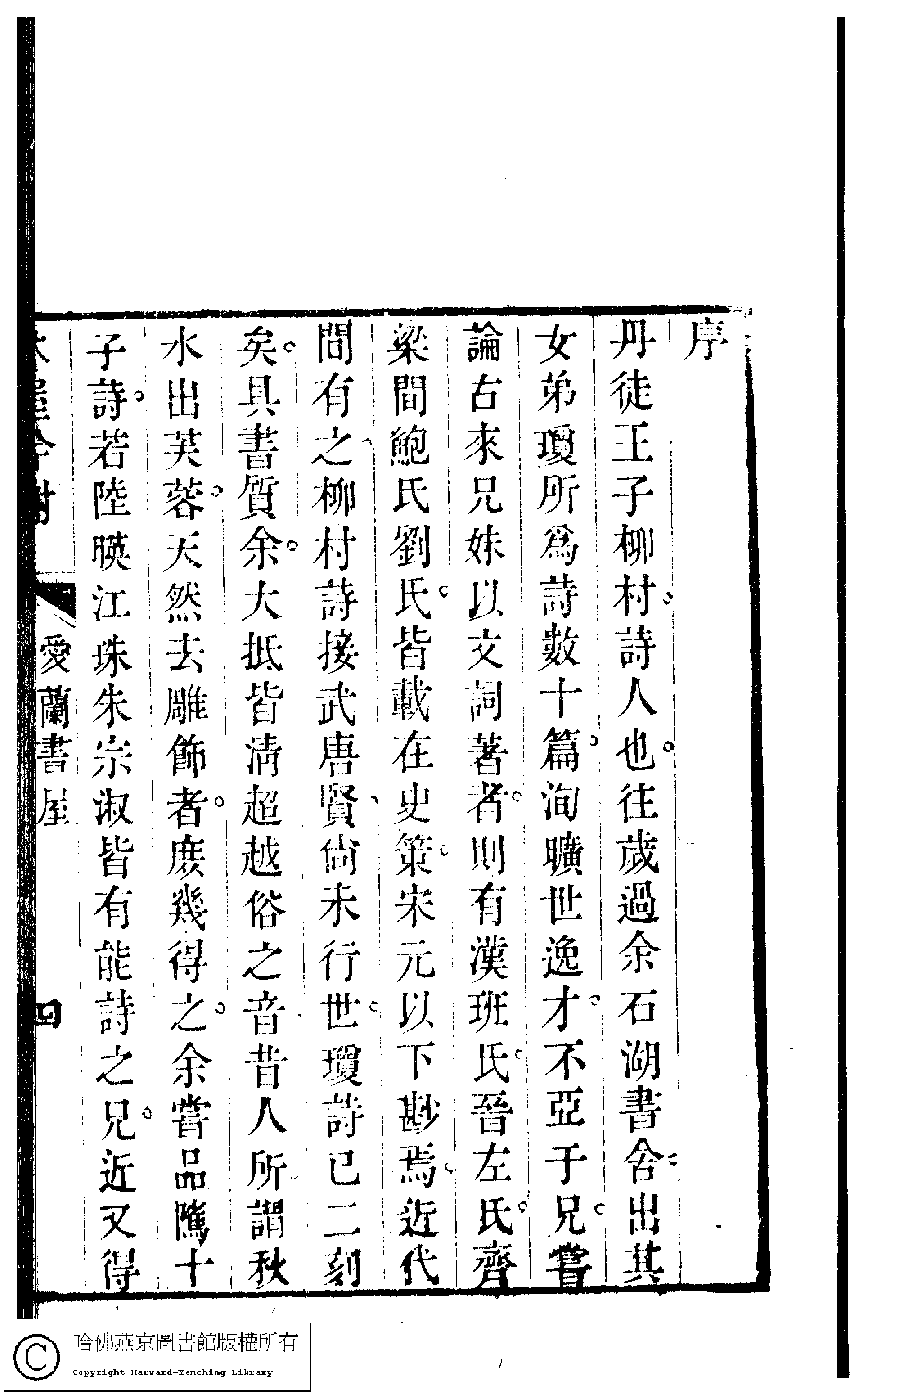 序
丹徒王子柳村。詩人也。往歲過余石湖書舍。出其
女弟瓊所爲詩數十篇。洵曠世逸才。不亞于兄。嘗
論古來兄妹以文詞著者。則有漢班氏。晉左氏。齊
梁間鮑氏劉氏。皆載在史策。宋元以下尠焉。近代
間有之、柳村詩接武唐賢、尙未行世。瓊詩已二刻
矣。具書質余。大抵皆淸超越俗之音昔人所謂秋
水出芙蓉。天然去雕飾者。庶幾得之。余嘗品隲十
子詩。若陸暎江珠朱宗淑皆有能詩之兄。近又得
愛蘭書屋
四
哈佛燕京圖書館版權所有
Copyright Harvard-Yenching Library